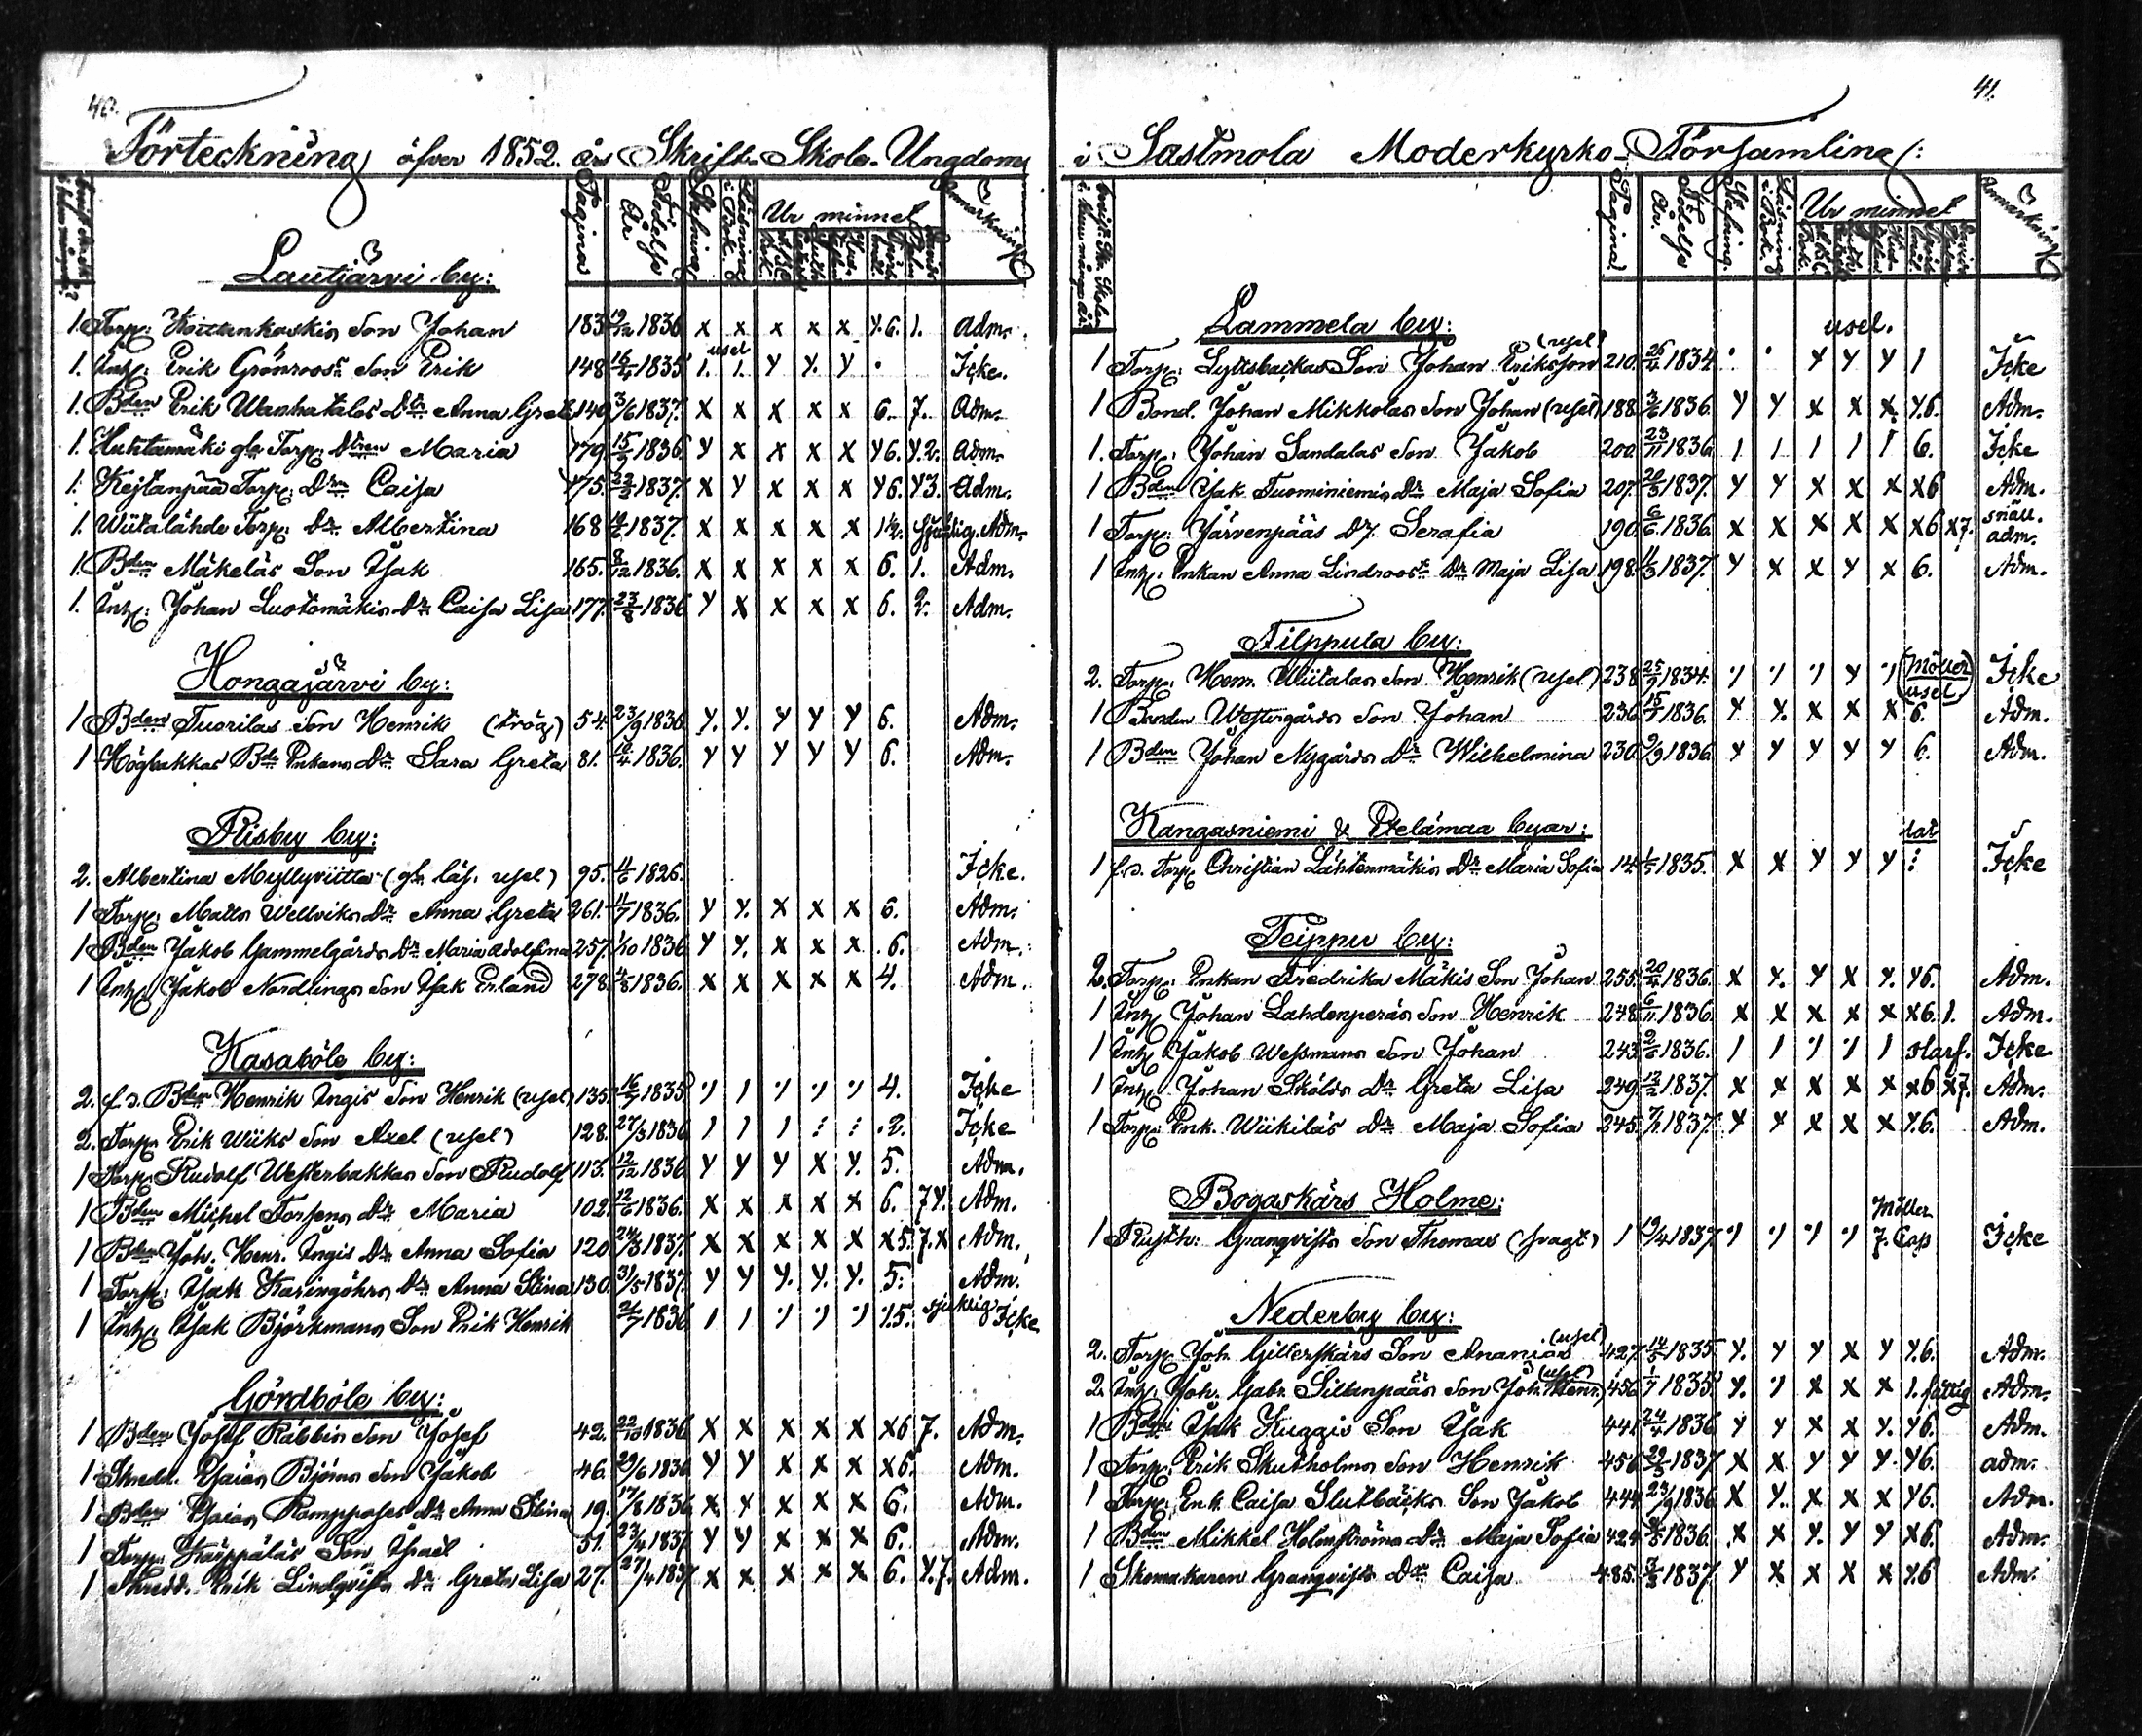 40.
Förteckning öfver 1852. års Skrift-Skole-Ungdom
Pagina Födelse År. Stafning Läsning i Bok. Ur minnet Anmärkning
Lautjärvi by:
1. Torp: Koittankoskis Son Johan 183 19/12 1836 x x x x x y.6. 1. Adm.
1. Inh: Erik Grönroos Son Erik 148 16/4 1835 1. usel 1. y y. y · Icke.
1. Bden Erik Wanhatalos Dtr Anna Greta 149 3/6 1837. x x x x x 6. 7. Adm.
1. Huhtamäki gla Torp: Dtren Maria 179 15/9 1836 y x x x x y6. y.2. Adm.
1. Kejtanpää Torp: Drn Caisa 175. 22/3 1837. x y x x x y6. y3. Adm.
1. Wiitalähde Torp: Dr Albertina 168 1837. x x x x x 1½. sjuklig. Adm.
1. Bden Mäkeläs Son Isak 165. 8/12 1836. x x x x x 6. 1. Adm.
1. Inh: Johan Luotomäkis Dr Caisa Lisa 177. 23/8 1836 y x x x x 6. 2. Adm.
Hongajärvi by:
1 Bden Tuorilas Son Henrik (trög) 54. 23/9 1836 y. y. y y y 6. Adm.
1 Högbakkas Bde Enkans Dr Sara Greta 81. 10/4 1836. y y y y y 6. Adm.
Risby by:
2. Albertina Myllyviitta (gl. läs. usel) 95. 4/6 1826. Icke.
1 Torp: Matts Wellviks Dr Anna Greta 261. 4/7 1836. y y. x x x 6. Adm.
1 Bden Jakob Gammelgårds Dr Maria Adolfina 257. 1/10 1836 y y. x x x .6. Adm.
1 Inh: Jakob Nordlings Son Isak Erland 278. 4/8 1836. x x x x x 4. Adm.
Kasaböle by:
2. f.d. Bden Henrik Ingis Son Henrik (usel) 135. 16/7 1835 ·/ 1 ·/ ·/ ·/ 4. Icke
2. Torp. Erik Wiiks Son Axel (usel) 128. 27/3 1836 1 1 1 : : .2. Icke
1 Torp: Rudolf Westerbakkas Son Rudolf 113. 12/12 1836 y y y x y. 5. Adm.
1 Bden Michel Torssens Dr Maria 102. 12/6 1836. x x x x x 6. 7y. Adm.
1 Bden Joh. Henr. Ingis Dr Anna Sofia 120 24/3 1837. x x x x x x5. 7.x Adm.
1 Torp: Isak Karingöhrs Dr Anna Stina 130. 31/5 1837. y y y. y. y. 5. Adm.
1 Inh: Isak Björkmans Son Erik Henrik 21/7 1836 1 1 ·/ ·/ ·/ 1.5. sjuklig Icke
Gördböle by:
1 Bden Josef Rabbis Son Josef 42. 22/10 1836 x x x x x x6 7. Adm.
1 Skredd. Esaias Björns Son Jakob 46. 29/6 1836 y y x x x x6. Adm.
1 Bden Esaias Ramppases Dr Anna Stina 19. 17/8 1836 x x x x x 6. Adm.
1 Torp: Karppäläs Son Israel 51. 23/4 1837 y y x x x 6. Adm.
1 Skredd. Erik Lindqvists Dr Greta Lisa 27. 27/4 1837 x x x x x 6. y.7. Adm.
41.
i Sastmola Moderkyrko-Församling:
Pagina Födelse År. Stafning. Läsning i Bok. Ur minnet Anmärkning
Lammela by: usel.
1 Torp: Lyttsbackas Son Johan Eriksson (usel) 210. 26/4 1834 · · y y y 1 Icke
1 Bond. Johan Mikkolas Son Johan (usel) 188 3/6 1836. y y x x x y.6. Adm.
1. Torp: Johan Sandalas Son Jakob 200. 23/11 1836 1 1 1 1 1 6. Icke
1 Bden Isak Tuominiemis Dr Maja Sofia 207. 20/3 1837. y y x x x x6 Adm.
1 Torp: Järvenpääs Dr. Serafia 190. 6/6 1836. x x x x x x6 x7. snäll. adm.
1 Inh: Enkan Anna Lindroos Dr Maja Lisa 198. 11/3 1837. y x x y x 6. Adm.
Filppula by:
2. Torp: Henr. Wiitalas Son Henrik (usel.) 238 25/7 1834. ·/ ·/ ·/ y ·/ (Möller usel) Icke
1 Bonden Westergårds Son Johan 236. 15/7 1836. y y. x x x 6. Adm.
1 Bden Johan Nygårds Dr Wilhelmina 230. 9/9 1836 y y y y y 6. Adm.
Kangasniemi & Etelämaa byar:
1 f.d. Torp. Christian Lähtenmäkis Dr Maria Sofia 14. 1835. x x y y y : lat Icke
Teippu by:
2. Torp: Enkan Fredrika Mäkis Son Johan 255. 20/4 1836. x y. y x y. y6. Adm.
1 Inh Johan Lahdenperäs Son Henrik 248. 6/11 1836. x x x x x x6. 1. Adm.
1 Inh Jakob Wessmans Son Johan 243. 2/6 1836. 1 1 ·/ ·/ 1 slarf. Icke
1 Inh Johan Skölds Dr Greta Lisa 249. 12/2 1837. x x x x x x6 x7. Adm.
1 Torp: Enk. Wiikiläs Dr Maja Sofia 245. 7/7 1837. y y x x x y.6. Adm.
Bogaskärs Holme:
1 Rusth: Granqvists Son Thomas (svagt) 1 19/4 1837. ·/ ·/ ·/ ·/ Möller 7. Cap Icke
Nederby by:
2. Torp. Joh. Gillerskärs Son Ananias (usel) 427 14/5 1835. y. y y x y y.6. Adm.
2. Inh: Joh. Gabr. Siltanpääs Son Joh. Henr. (usel) 456 1/7 1835. y. ·/ x x x 1. fattig Adm.
1 Bden Isak Kuggis Son Isak 441. 24/4 1836. y y x x y. y6. Adm.
1 Torp: Erik Skutholms Son Henrik 456 22/3 1837 x x y y y. y6. adm.
1 Torp: Enk. Caisa Slutbäcks Son Jakob 444 23/9 1836 x y. x x x y6. Adm.
1 Bden Mikkel Holmströms Dr Maja Sofia 424 1836. x x y. y y x6. Adm.
1 Skomakaren Granqvists Dr Caisa 485. 3/3 1837. y x x x x y.6 Adm.